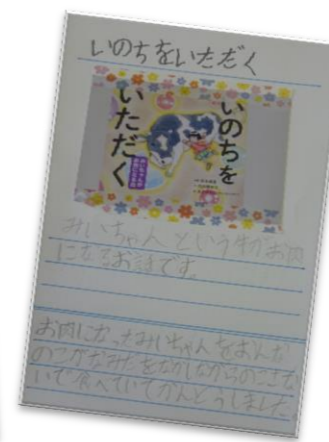 いのちをいただく
いのちを
いただく
みいちゃんという牛がお肉
になるお話です。
お肉になったみいちゃんをおんな
のこがなみだをながしながらのこさな
いで食べていてかんどうしました